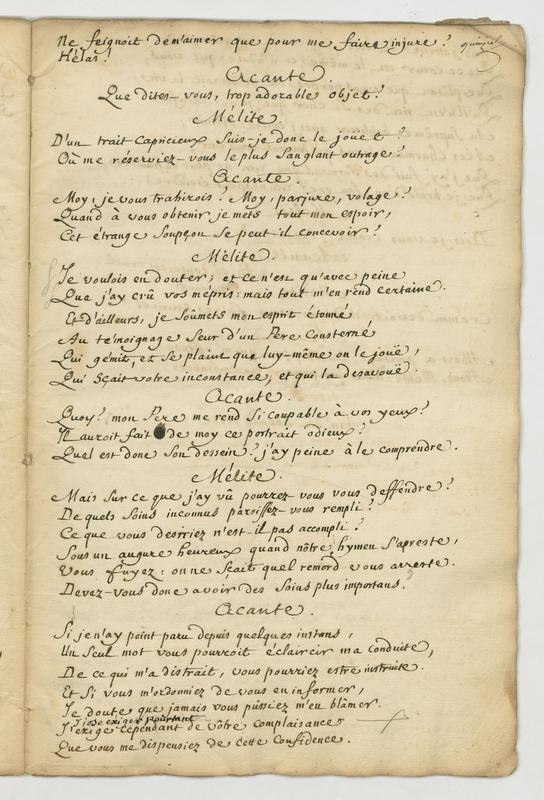 Ne feignoit de m'aimer que pour me faire injure?
Hélas!
Acante.
Que dites-vous, trop adorable objet?
Mélite.
D'un trait capricieux suis-je donc le joüet?
Où me réserviez-vous le plus sanglant outrage?
Acante.
Moy, je vous trahirois? Moy, parjure, volage?
Quand à vous obtenir je mets tout mon espoir,
Cet étrange soupçon se peut-il concevoir?
Mélite.
Je voulois en douter; et ce n'est qu'avec peine
Que j'ay crû vos mépris: mais tout m'en rend certaine.
Et d'ailleurs, je soûmets mon esprit étonné
Au témoignage seur d'un Père consterné
Qui gémit, et se plaint que luy-même on le joüe,
Qui sçait votre inconstance, et qui la desavoüe.
Acante.
Quoy? mon Pere me rend si coupable à vos yeux?
Il auroit fait de moy ce portrait odieux?
Quel est donc son dessein? j'ay peine à le comprendre.
Mélite.
Mais sur ce que j'ay vû pourrez-vous vous deffendre?
De quels soins inconnus paroissez-vous rempli?
Ce que vous desiriez n'est-il pas accompli?
Sous un augure heureux quand nôtre hymen s'apreste,
Vous fuyez: on ne sçait quel remord vous arreste.
Devez-vous donc avoir des soins plus importans?
Acante.
Si je n'ay point paru depuis quelques instans,
Un seul mot vous pourroit éclaircir ma conduite,
De ce qui m'a distrait, vous pourriez estre instruite.
Et si vous m'ordonniez de vous en informer,
Je doute que jamais vous pussiez m'en blâmer.
j'ose exiger pourtant
J'exige cependant de vôtre complaisance
Que vous me dispensiez de cette confidence.